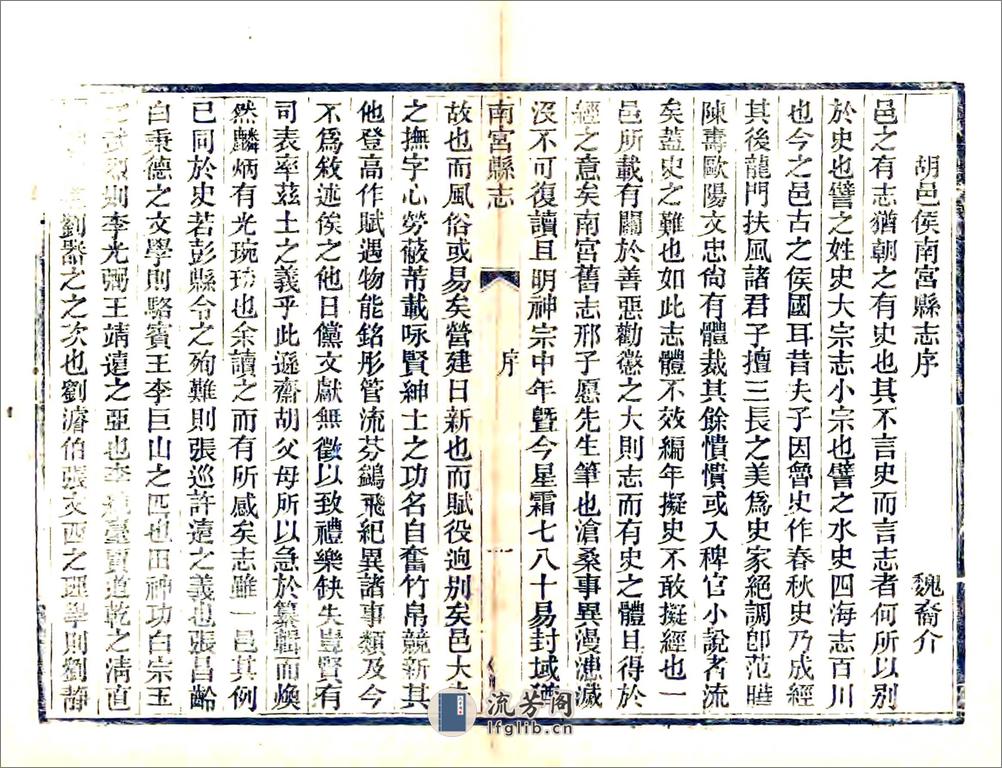 胡邑侯南宮縣志序
魏裔介
邑之有志猶朝之有史也其不言史而言志者何所以別
於史也譬之姓史大宗志小宗也譬之水史四海志百川
也今之邑古之侯國耳昔夫子因魯史作春秋史乃成經
其後龍門扶風諸君子擅三長之美爲史家絕調卽范曄
陳壽歐陽文忠尙有體裁其餘憒憒或入稗官小說者流
矣蓋史之難也如此志體不效編年擬史不敢擬經也一
邑所載有關於善惡勸懲之大則志而有史之體且得於
經之意矣南宮舊志邢子愿先生筆也滄桑事異漫漶滅
沒不可復讀且明神宗中年曁今星霜七八十易封域猶
南宮縣志
序
一
故也而風俗或易矣營建日新也而賦役逈別矣邑大夫
之撫字心勞蔽芾載咏賢紳士之功名自奮竹帛競新其
他登高作賦遇物能銘彤管流芬鷁飛紀異諸事類及今
不爲敘述俟之他日儻文獻無徵以致禮樂缺失豈賢有
司表率茲土之義乎此遜齋胡父母所以急於纂輯而煥
然麟炳有光琬琰也余讀之而有所感矣志雖一邑其例
已同於史若彭縣令之殉難則張巡許遠之義也張昌齡
白秉德之文學則駱賓王李巨山之匹也田神功白宗玉
之 則李光弼王靖遠之亞也李 臺賈道乾之淸直
劉器之之次也劉濬伯張文西之理學則劉靜
流芳阁
lfglib.cn